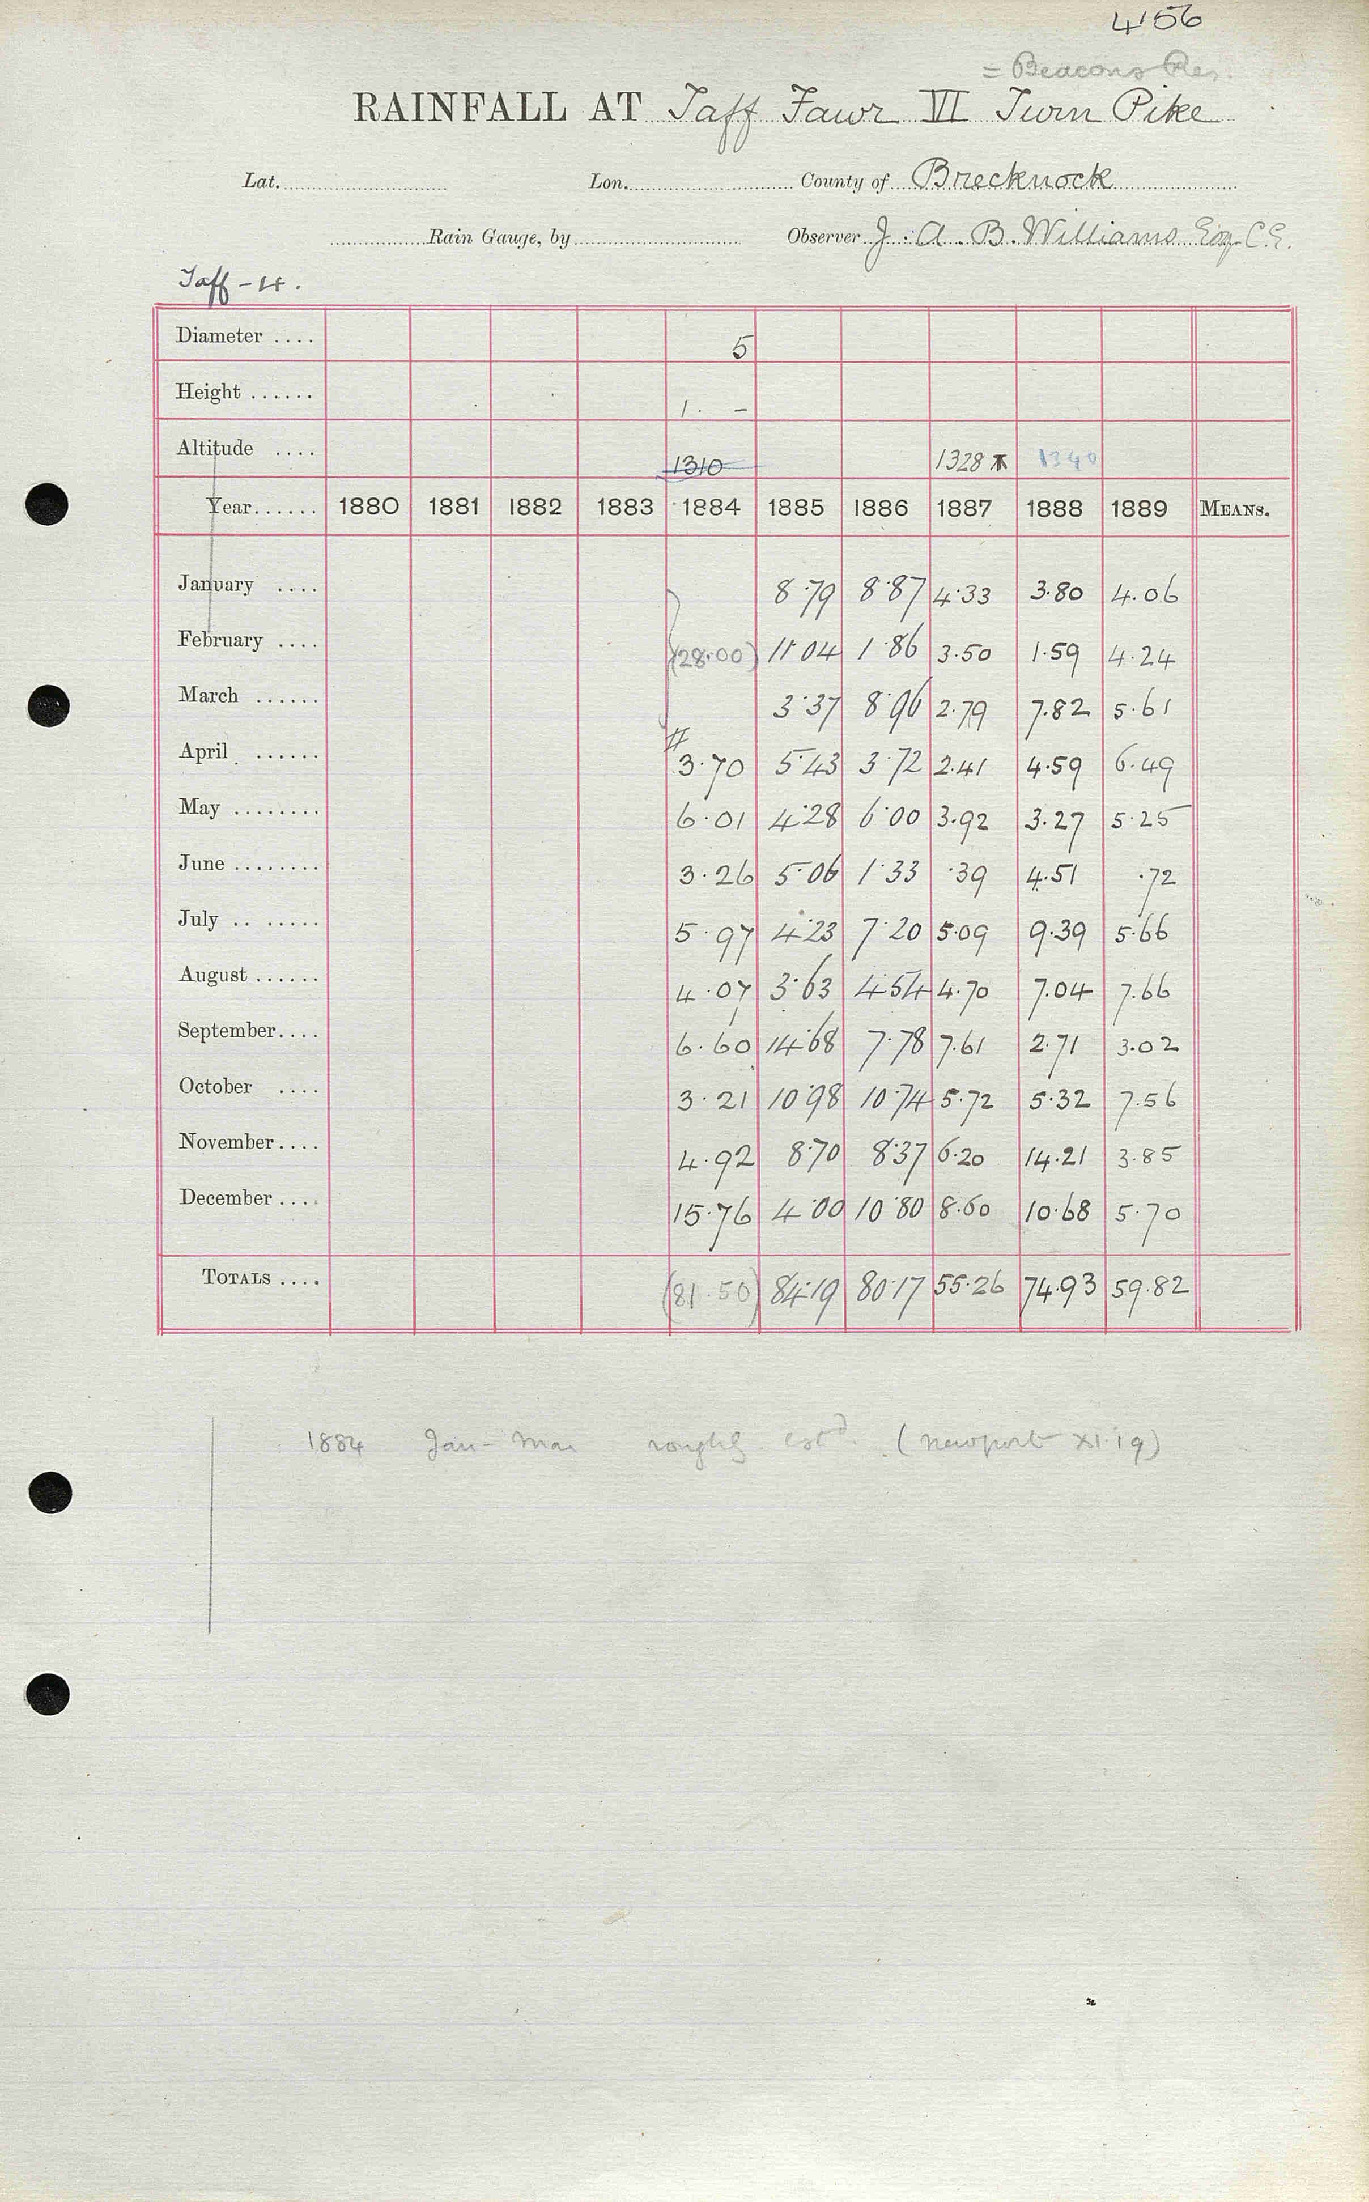 4156
= Beacons Res.
RAINFALL AT Taff Fawr VI Turn Pike
Lat. Lon. County of Brecknock
Rain Gauge, by Observer J. A. B. Williams Esq C.E.
Taff - 4.
Diameter .... 5
Height ...... 1 . -
Altitude .... 1310 1328 1340
Year...... 1880 1881 1882 1883 1884 1885 1886 1887 1888 1889 MEANS.
January .... 8.79 8.87 4.33 3.80 4.06
February .... (28.00) 11.04 1.86 3.50 1.59 4.24
March ...... 3.37 8.96 2.79 7.82 5.61
April ...... 3.70 5.43 3.72 2.41 4.59 6.49
May ........ 6.01 4.28 6.00 3.92 3.27 5.25
June ........ 3.26 5.06 1.33 .39 4.51 .72
July .. ..... 5.97 4.23 7.20 5.09 9.39 5.66
August ...... 4.07 3.63 4.54 4.70 7.04 7.66
September.... 6.60 14.68 7.78 7.61 2.71 3.02
October .... 3.21 10.98 10.74 5.72 5.32 7.56
November.... 4.92 8.70 8.37 6.20 14.21 3.85
December.... 15.76 4.00 10.80 8.60 10.68 5.70
TOTALS .... (81.50) 84.19 80.17 55.26 74.93 59.82
1884 Jan - Mar roughly estd. (Newport XI.19)